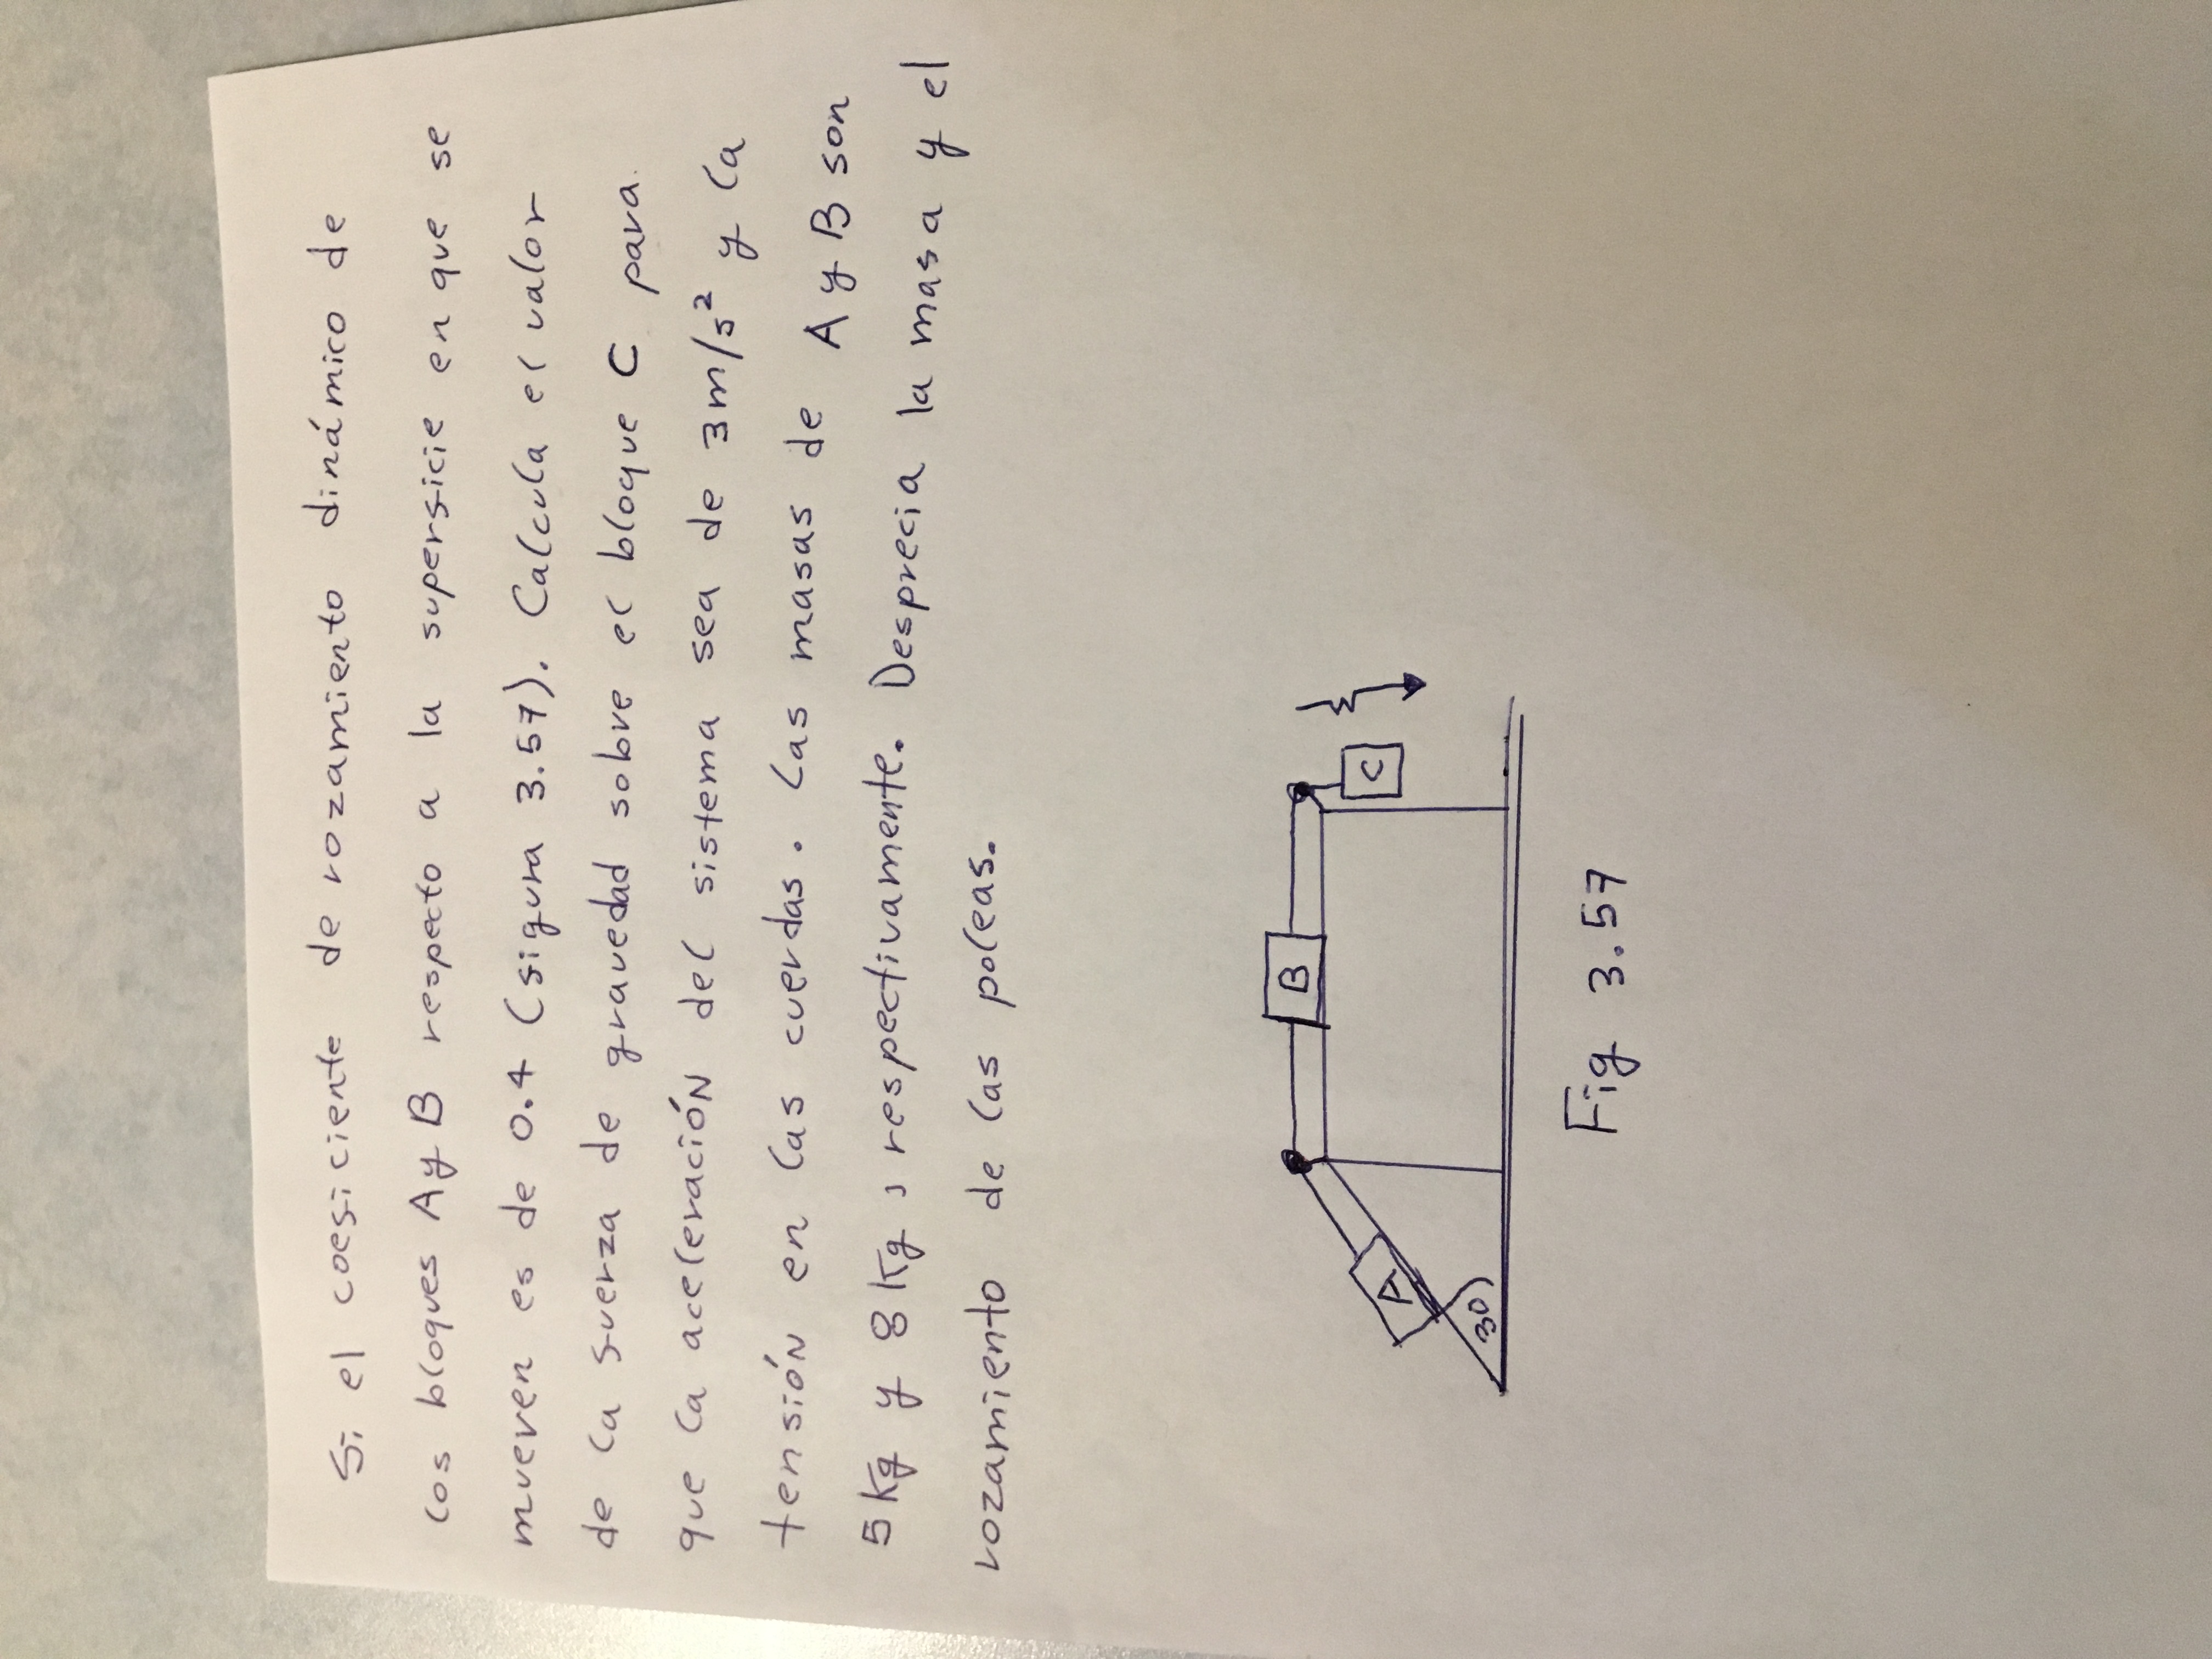 Si el coeficiente de rozamiento dinámico de
los bloques A y B respecto a la superficie en que se
mueven es de 0.4 (figura 3.57). Calcula el valor
de la fuerza de gravedad sobre el bloque C para
que la aceleración del sistema sea de 3 m/s² y la
tensión en las cuerdas. Las masas de A y B son
5 kg y 8 kg, respectivamente. Desprecia la masa y el
rozamiento de las poleas.
A
B
C
30
Fig 3.57